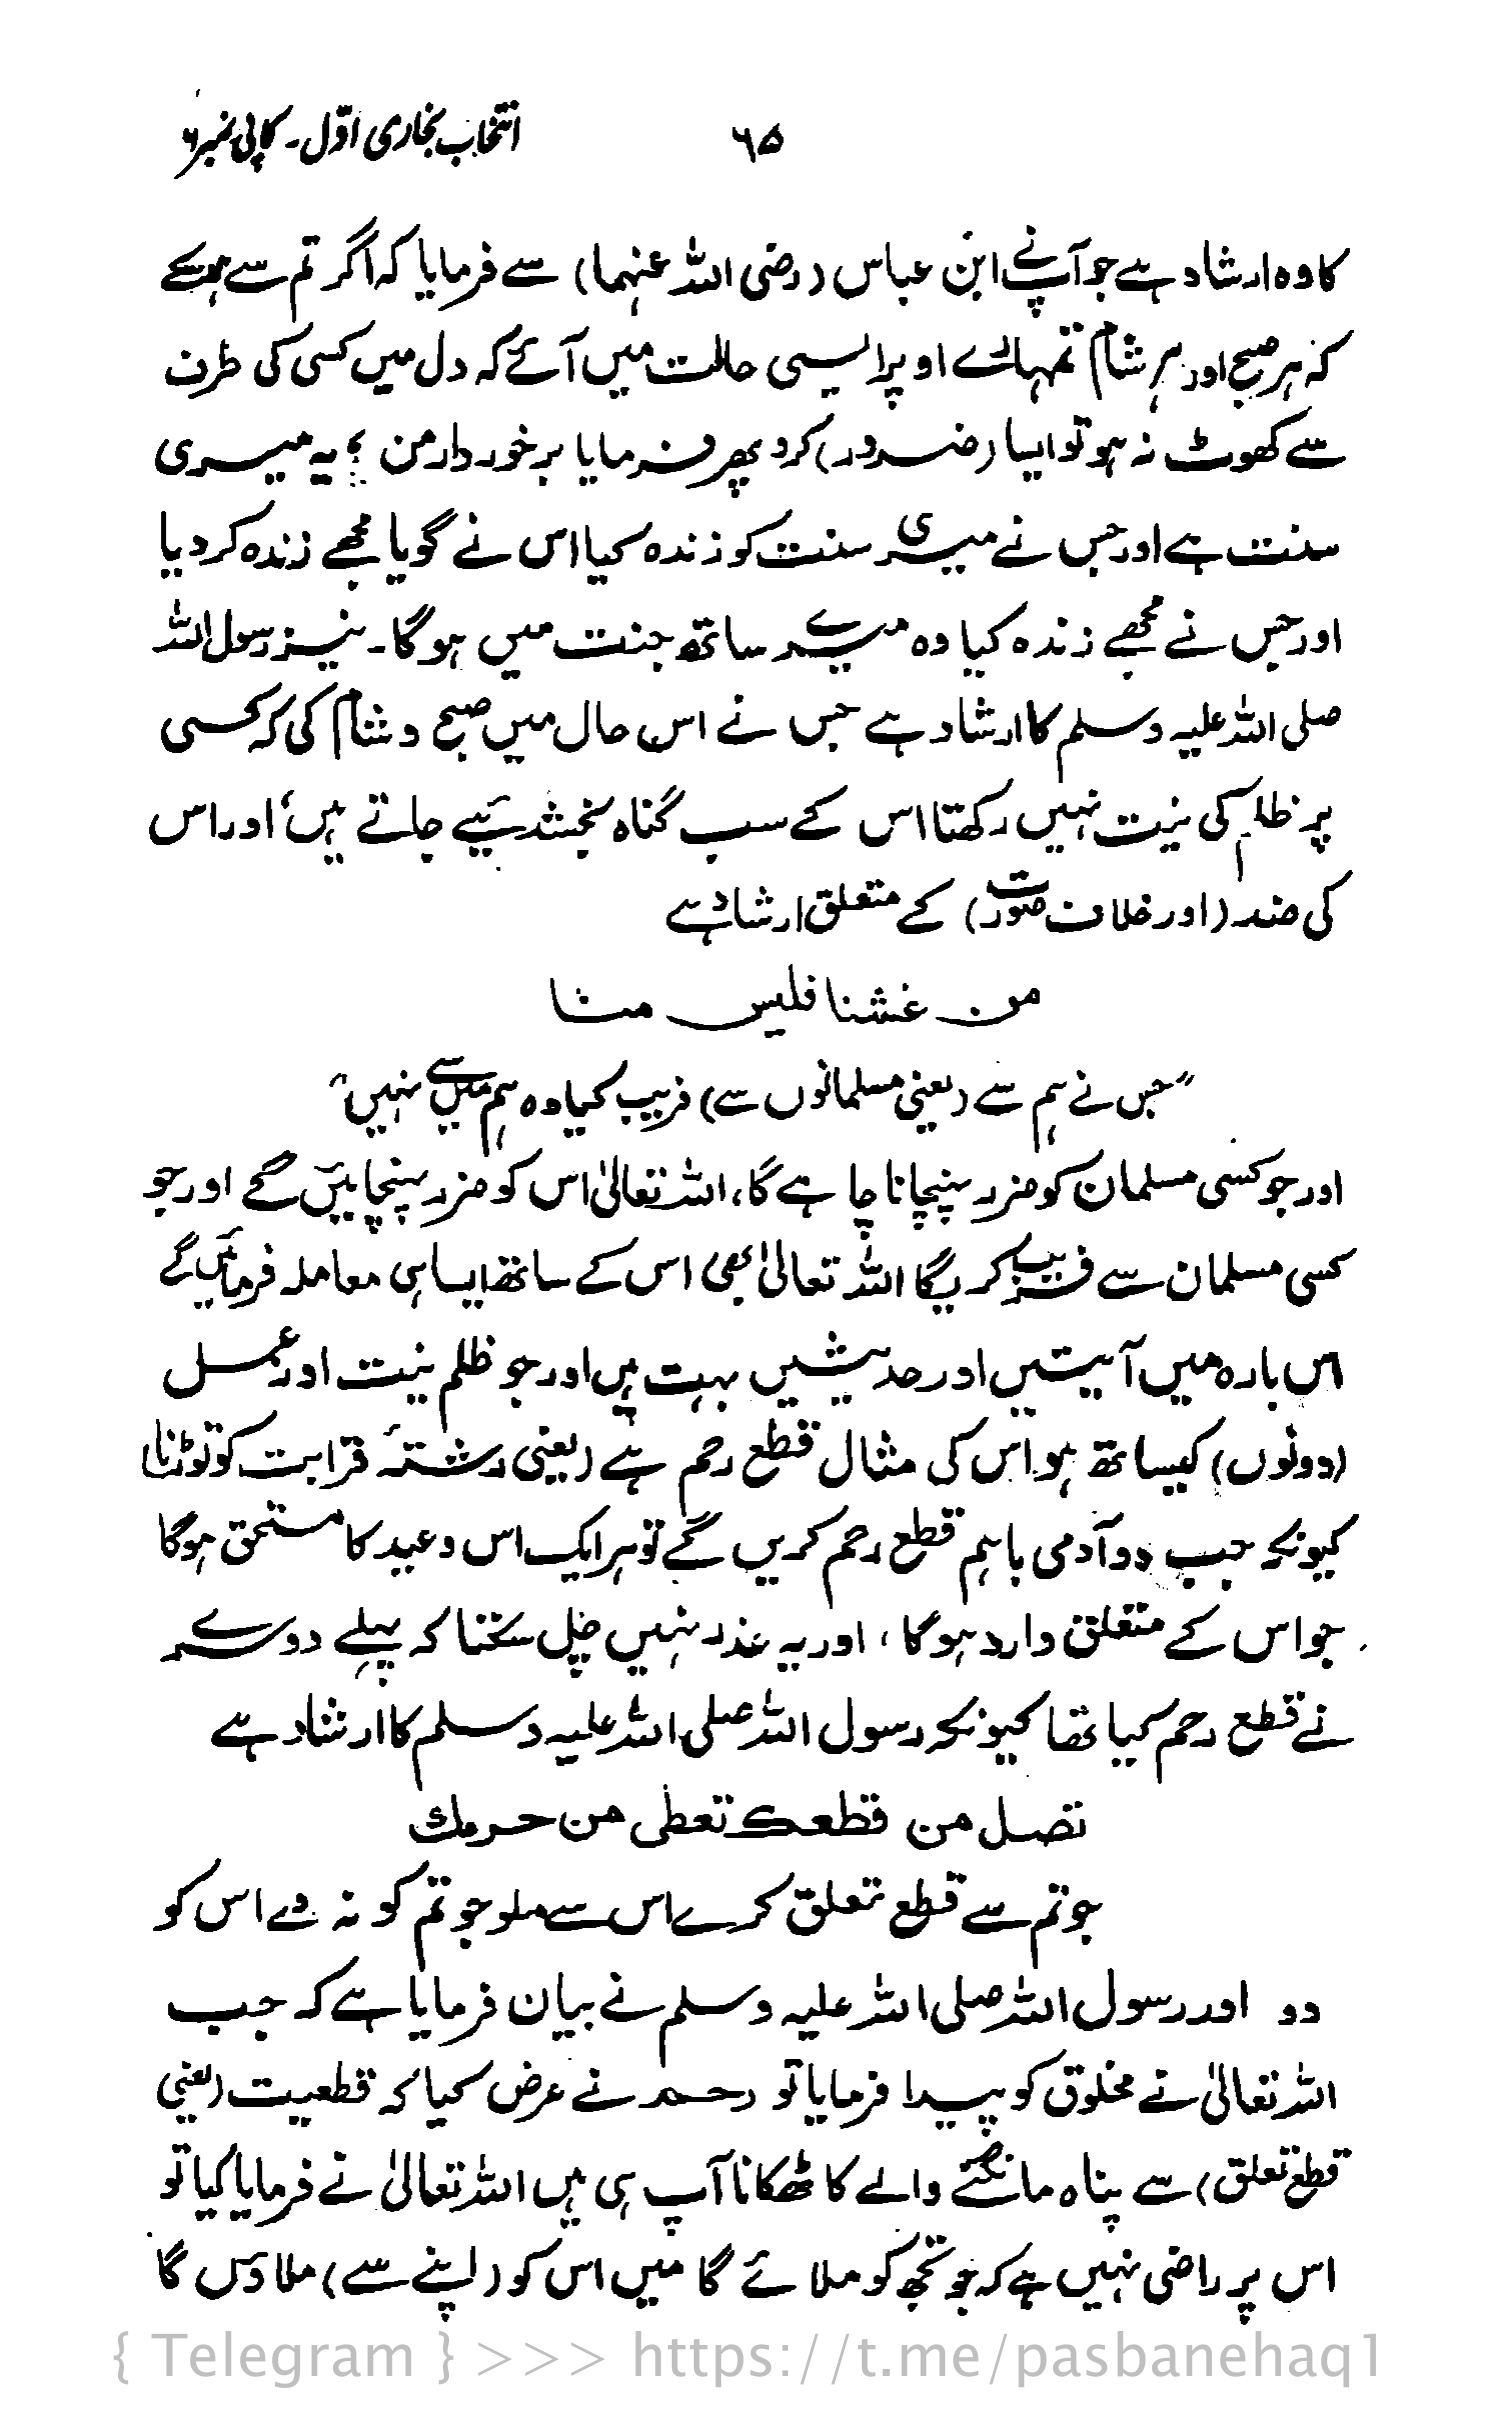 انتخاب بخاری اوّل۔ کاپی نمبر ۶
۶۵
کا وہ ارشاد ہے جو آپ نے ابن عباس (رضی اللہ عنہما) سے فرمایا کہ اگر تم سے ہو سکے
کہ ہر صبح اور ہر شام تمہارے اوپر ایسی حالت میں آئے کہ دل میں کسی کی طرف
سے کھوٹ نہ ہو تو ایسا (ضرور) کرو پھر فرمایا برخوردار من ؛ یہ میری
سنت ہے اور جس نے میری سنت کو زندہ کیا اس نے گویا مجھے زندہ کر دیا
اور جس نے مجھے زندہ کیا وہ میرے ساتھ جنت میں ہوگا۔ نیز رسول اللہ
صلی اللہ علیہ وسلم کا ارشاد ہے جس نے اس حال میں صبح و شام کی کہ کسی
پر ظلم کی نیت نہیں رکھتا اس کے سب گناہ بخش دئیے جاتے ہیں، اور اس
کی ضد (اور خلاف صورت) کے متعلق ارشاد ہے
من غشنا فلیس منا
”جس نے ہم سے (یعنی مسلمانوں سے) فریب کیا وہ ہم میں سے نہیں“
اور جو کسی مسلمان کو ضرر پہنچانا چاہے گا، اللہ تعالیٰ اس کو ضرر پہنچائیں گے اور جو
کسی مسلمان سے فریب کریگا اللہ تعالیٰ بھی اس کے ساتھ ایسا ہی معاملہ فرمائیں گے
اس بارہ میں آیتیں اور حدیثیں بہت ہیں اور جو ظلم نیت اور عمل
(دونوں) کیساتھ ہو اس کی مثال قطع رحم ہے (یعنی رشتۂ قرابت کو توڑنا)
کیونکہ جب دو آدمی باہم قطع رحم کریں گے تو ہر ایک اس وعید کا مستحق ہوگا
جو اس کے متعلق وارد ہوگا، اور یہ عذر نہیں چل سکتا کہ پہلے دوسرے
نے قطع رحم کیا تھا کیونکہ رسول اللہ صلی اللہ علیہ وسلم کا ارشاد ہے
تصل من قطعك تعطی من حرمك
جو تم سے قطع تعلق کرے اس سے ملو جو تم کو نہ دے اس کو
دو اور رسول اللہ صلی اللہ علیہ وسلم نے بیان فرمایا ہے کہ جب
اللہ تعالیٰ نے مخلوق کو پیدا فرمایا تو رحم نے عرض کیا کہ قطعیت (یعنی
قطع تعلق) سے پناہ مانگنے والے کا ٹھکانا آپ ہی ہیں اللہ تعالیٰ نے فرمایا کیا تو
اس پر راضی نہیں ہے کہ جو تجھ کو ملائے گا میں اس کو (اپنے سے) ملاؤں گا
{ Telegram } >>> https://t.me/pasbanehaq1